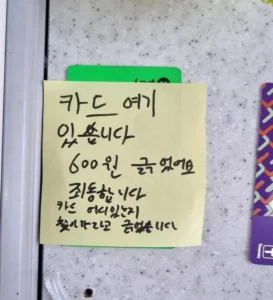 카드 여기
있습니다
600원 긁었어요
죄동합니다
카드 어디있는지
찾아가라고 긁었습니다